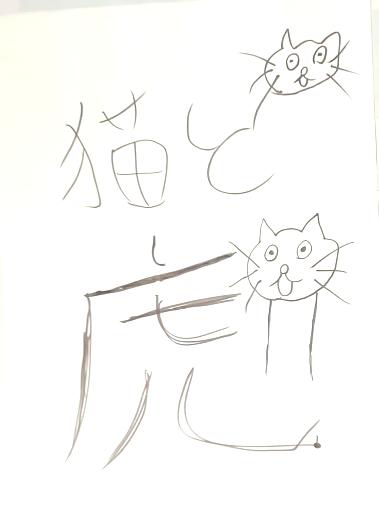 猫と
虎